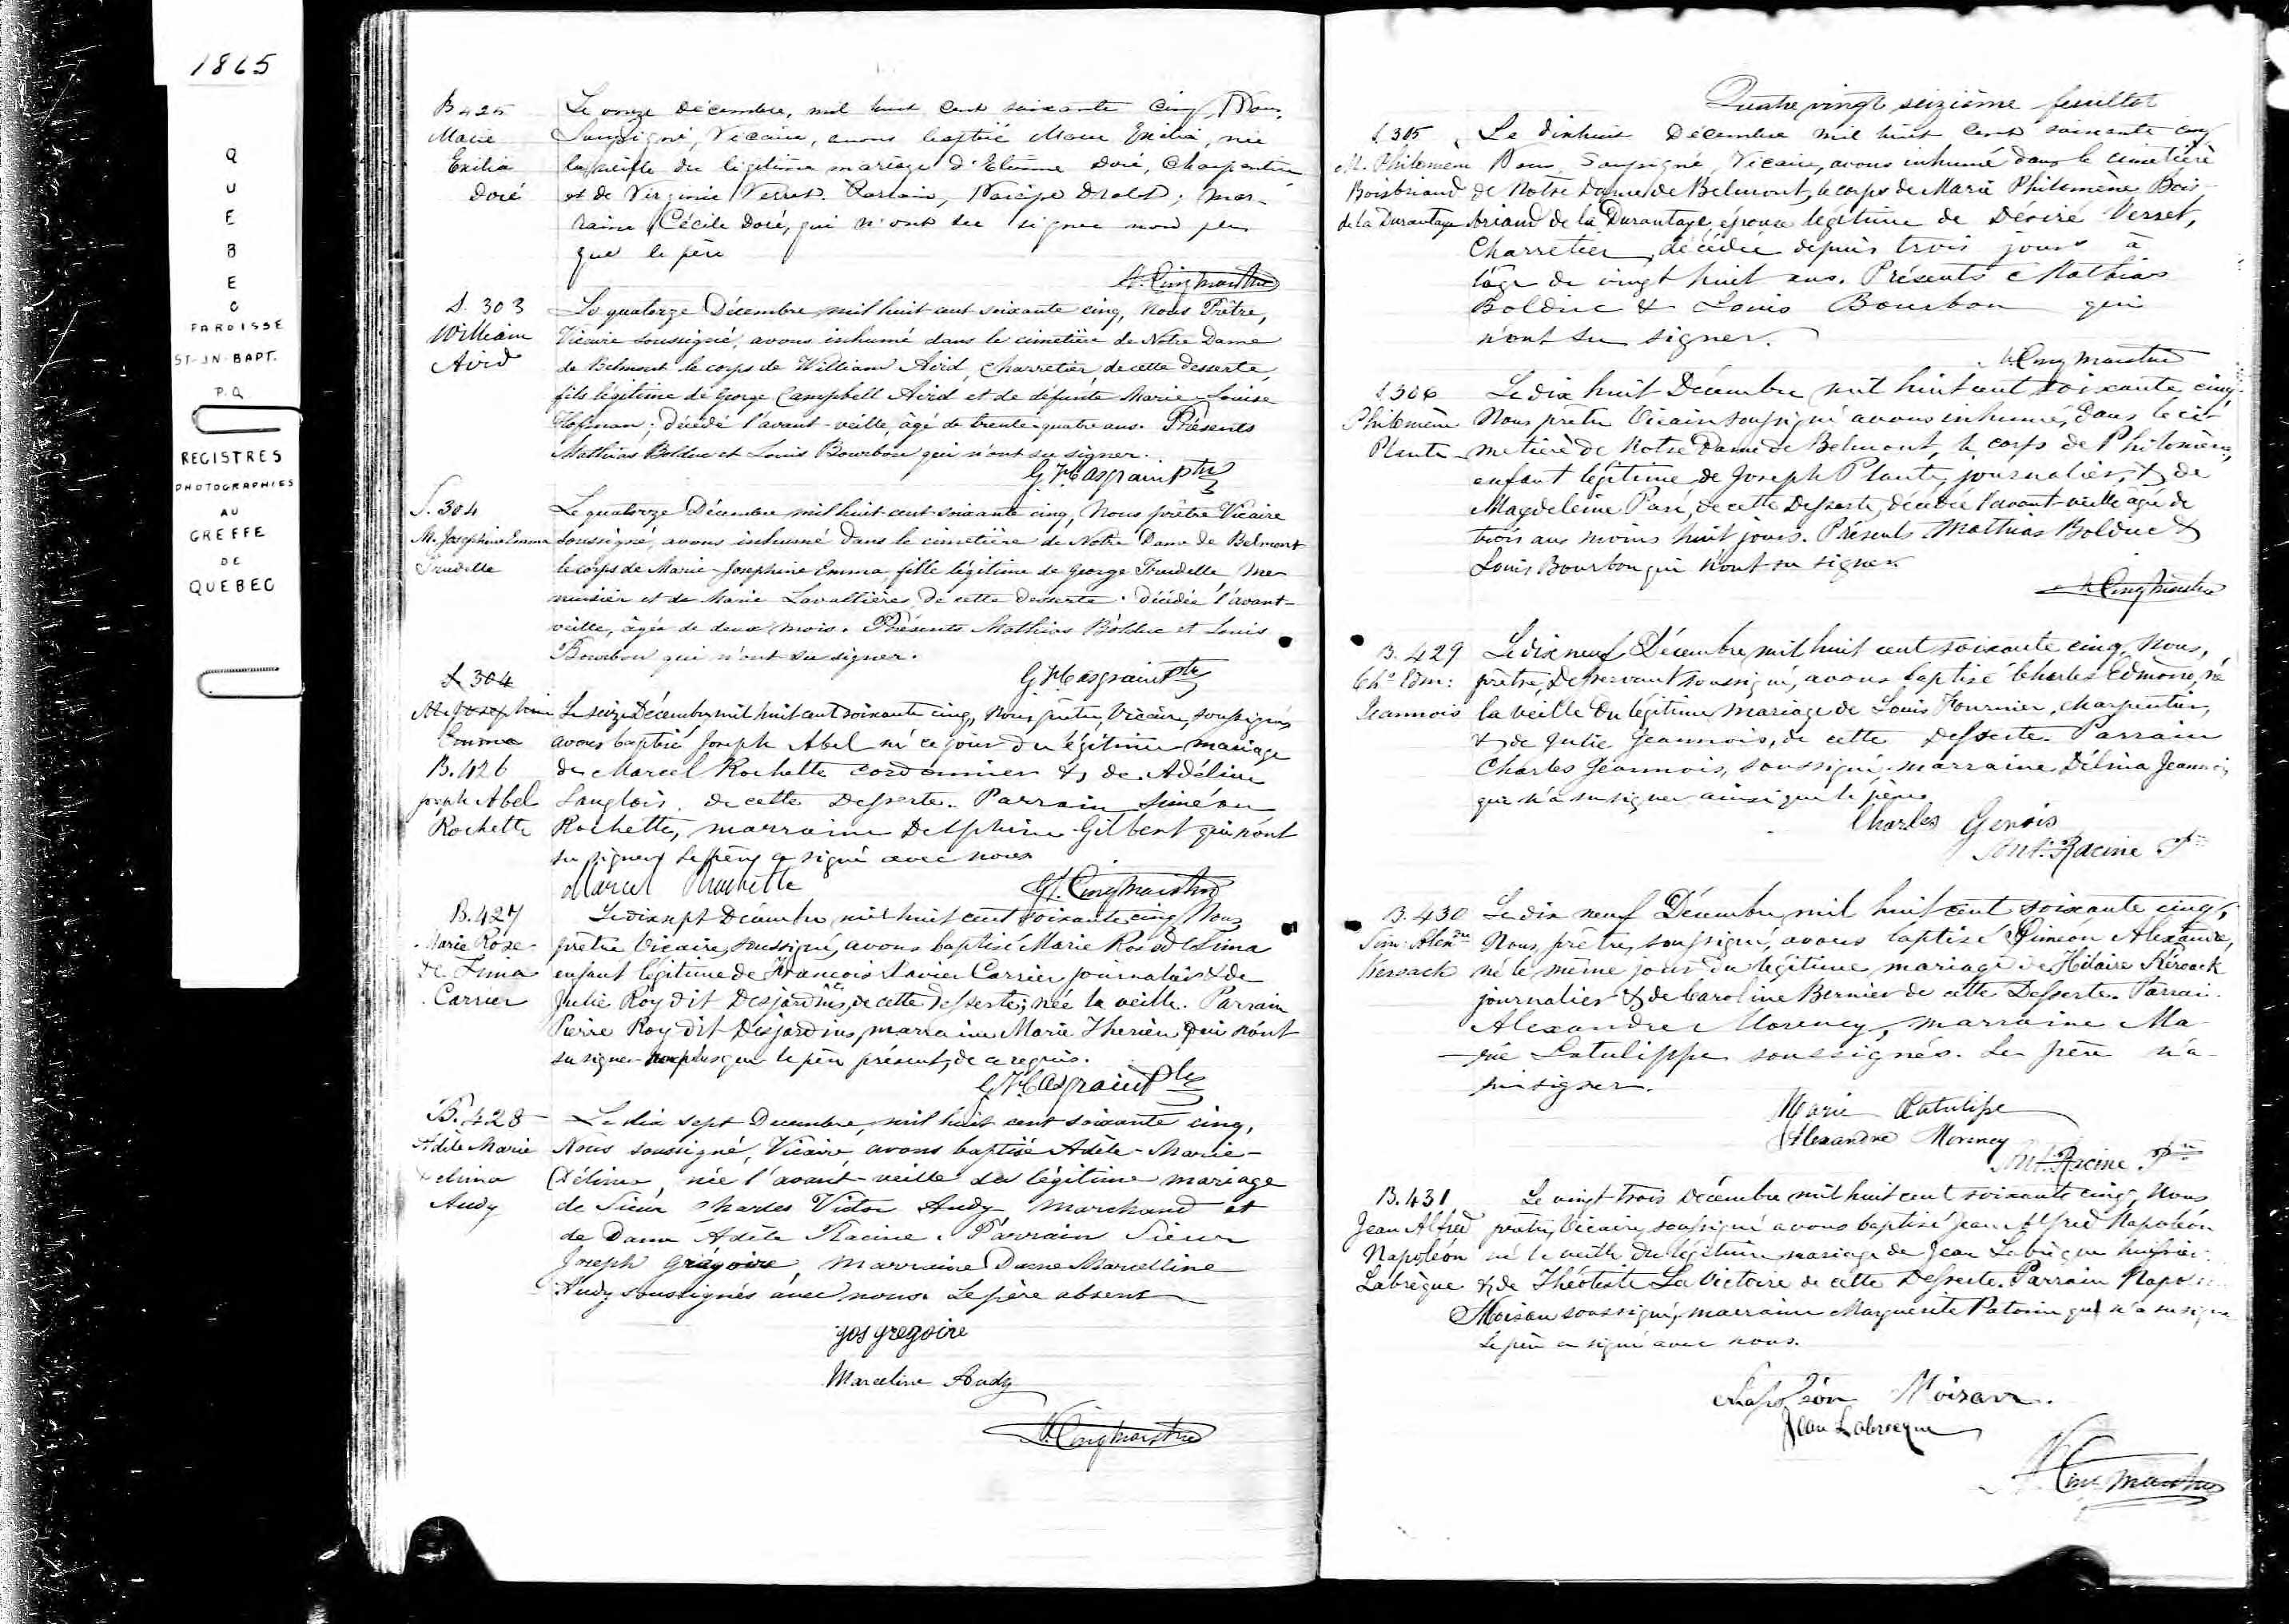 1865
QUEBEC
PAROISSE
ST-JN-BAPT.
P.Q
REGISTRES
PHOTOGRAPHIES
AU
GREFFE
DE
QUEBEC
B 425
Marie
Exilia
Doré
Le onze Décembre, mil huit cent soixante cinq, Nous,
Soussigné, Vicaire, avons baptisé Marie Exilia, née
la veille du légitime mariage d'Etienne Doré, Charpentier
et de Virginie Verret. Parrain, Drolet; mar-
raine Cécile Doré, qui n'ont su signer non plus
que le père
N. Cinqmars Ptre
S. 303
William
Avid
Le quatorze Décembre mil huit-cent soixante cinq, Nous Prêtre,
Vicaire soussigné, avons inhumé dans le cimetière de Notre Dame
de Belmont le corps de William Avid, charretier, de cette desserte,
fils légitime de George Campbell Avid et de défunte Marie-Louise
Hofman; décédé l'avant-veille, âgé de trente-quatre ans. Présents
Mathias Bolduc et Louis Bourbon qui n'ont su signer.
G. H. Casgrain Ptre
S. 304
M. Josephine Emma
Trudelle
Le quatorze Décembre mil huit-cent-soixante cinq, Nous prêtre Vicaire
Soussigné, avons inhumé dans le cimetière de Notre Dame de Belmont
le corps de Marie-Josephine Emma fille légitime de George Trudelle, Me-
nuisier et de Marie Lavallière, de cette desserte. Décédée l'avant-
veille, âgée de deux mois. Présents Mathias Bolduc et Louis
Bourbon qui n'ont su signer.
G. H. Casgrain Ptre
S. 304
M. Josephine
Emma
B. 426
Joseph Abel
Rochette
Le seize Décembre mil huit cent soixante cinq, Nous, prêtre, Vicaire, soussigné,
avons baptisé Joseph Abel né ce jour du légitime mariage
de Marcel Rochette cordonnier & de Adéline
Langlois, de cette Desserte. Parrain Siméon
Rochette, marraine Delphine Gilbert qui n'ont
su signer, le père a signé avec nous
Marcel Rochette
N. Cinqmars Ptre
B. 427
Marie Rose
de Lima
Carrier
Le dix sept Décembre mil huit cent soixante cinq, Nous
prêtre Vicaire, soussigné, avons baptisé Marie Rose de Lima
enfant légitime de Francois Xavier Carrier journalier & de
Julie Roy dit Desjardins, de cette Desserte; née la veille. Parrain
Pierre Roy dit Desjardins, marraine Marie Therien qui n'ont
su signer non plus que le père présent, de ce requis.
G. H. Casgrain Ptre
B. 428
Adèle Marie
Délima
Audy
Le dix sept Decembre, mil huit cent soixante cinq,
Nous soussigné, Vicaire, avons baptisé Adèle-Marie-
Délima, née l'avant-veille du légitime mariage
de Sieur Charles Victor Audy Marchand et
de Dame Adèle Racine. Parrain Sieur
Joseph Grégoire, Marraine Dame Marcelline
Audy soussignés avec nous. Le père absent
Jos Gregoire
Marceline Audy
N. Cinqmars Ptre
Quatre vingt seizième feuillet
S. 305
M. Philomène
Boisbriand
de la Durantaye
Le dix huit Décembre mil huit cent soixante cinq
Nous, Soussigné, Vicaire, avons inhumé dans le cimetière
de Notre Dame de Belmont, le corps de Marie Philomène Bois-
briand de la Durantaye, épouse légitime de Désiré Verret,
Charretier, décédée depuis trois jours à
l'âge de vingt huit ans. Présents Mathias
Bolduc & Louis Bourbon qui
n'ont su signer.
N. Cinqmars Ptre
S 306
Philomène
Plante
Le dix huit Décembre mil huit cent soixante cinq,
Nous prêtre Vicaire soussigné avons inhumé, dans le ci-
metière de Notre Dame de Belmont, le corps de Philomène,
enfant légitime de Joseph Plante, journalier, & de
Magdeleine Paré, de cette Desserte, décédée l'avant-veille âgée de
trois ans moins huit jours. Présents Mathias Bolduc &
Louis Bourbon qui n'ont su signer.
N. Cinqmars Ptre
B. 429
Chs. Edm:
Jeannois
Le dix neuf Décembre mil huit cent soixante cinq, Nous,
prêtre, Desservant soussigné, avons baptisé Charles Edmond, né
la veille du légitime mariage de Louis Fournier, charpentier,
& de Julie Jeannois, de cette Desserte. Parrain
Charles Jeannois, soussigné, marraine Délina Jeannois
qui n'a su signer ainsi que le père
Charles Genois
Ant. Racine Ptre
B. 430
Sim: Alexdre
Keroack
Le dix neuf Décembre mil huit cent soixante cinq,
Nous, prêtre, soussigné, avons baptisé Siméon Alexandre,
né le même jour du légitime mariage de Hilaire Kéroack
journalier & de Caroline Bernier de cette Desserte. Parrain
Alexandre Morency, marraine Ma-
rie Latulippe soussignés. Le père n'a
su signer.
Marie Latulipe
Alexandre Morency
Ant. Racine Ptre
B. 431
Jean Alfred
Napoléon
Labrèque
Le vingt-trois Décembre mil huit cent soixante cinq, Nous
prêtre, Vicaire, soussigné avons baptisé Jean Alfred Napoléon
né la veille du légitime mariage de Jean Labrèque huissier
& de Théotiste La Victoire de cette Desserte. Parrain Napoléon
Moisan soussigné, marraine Marguerite Patoine qui n'a su signer
Le père a signé avec nous.
Napoléon Moisan.
Jean Labrecque
N. Cinqmars Ptre